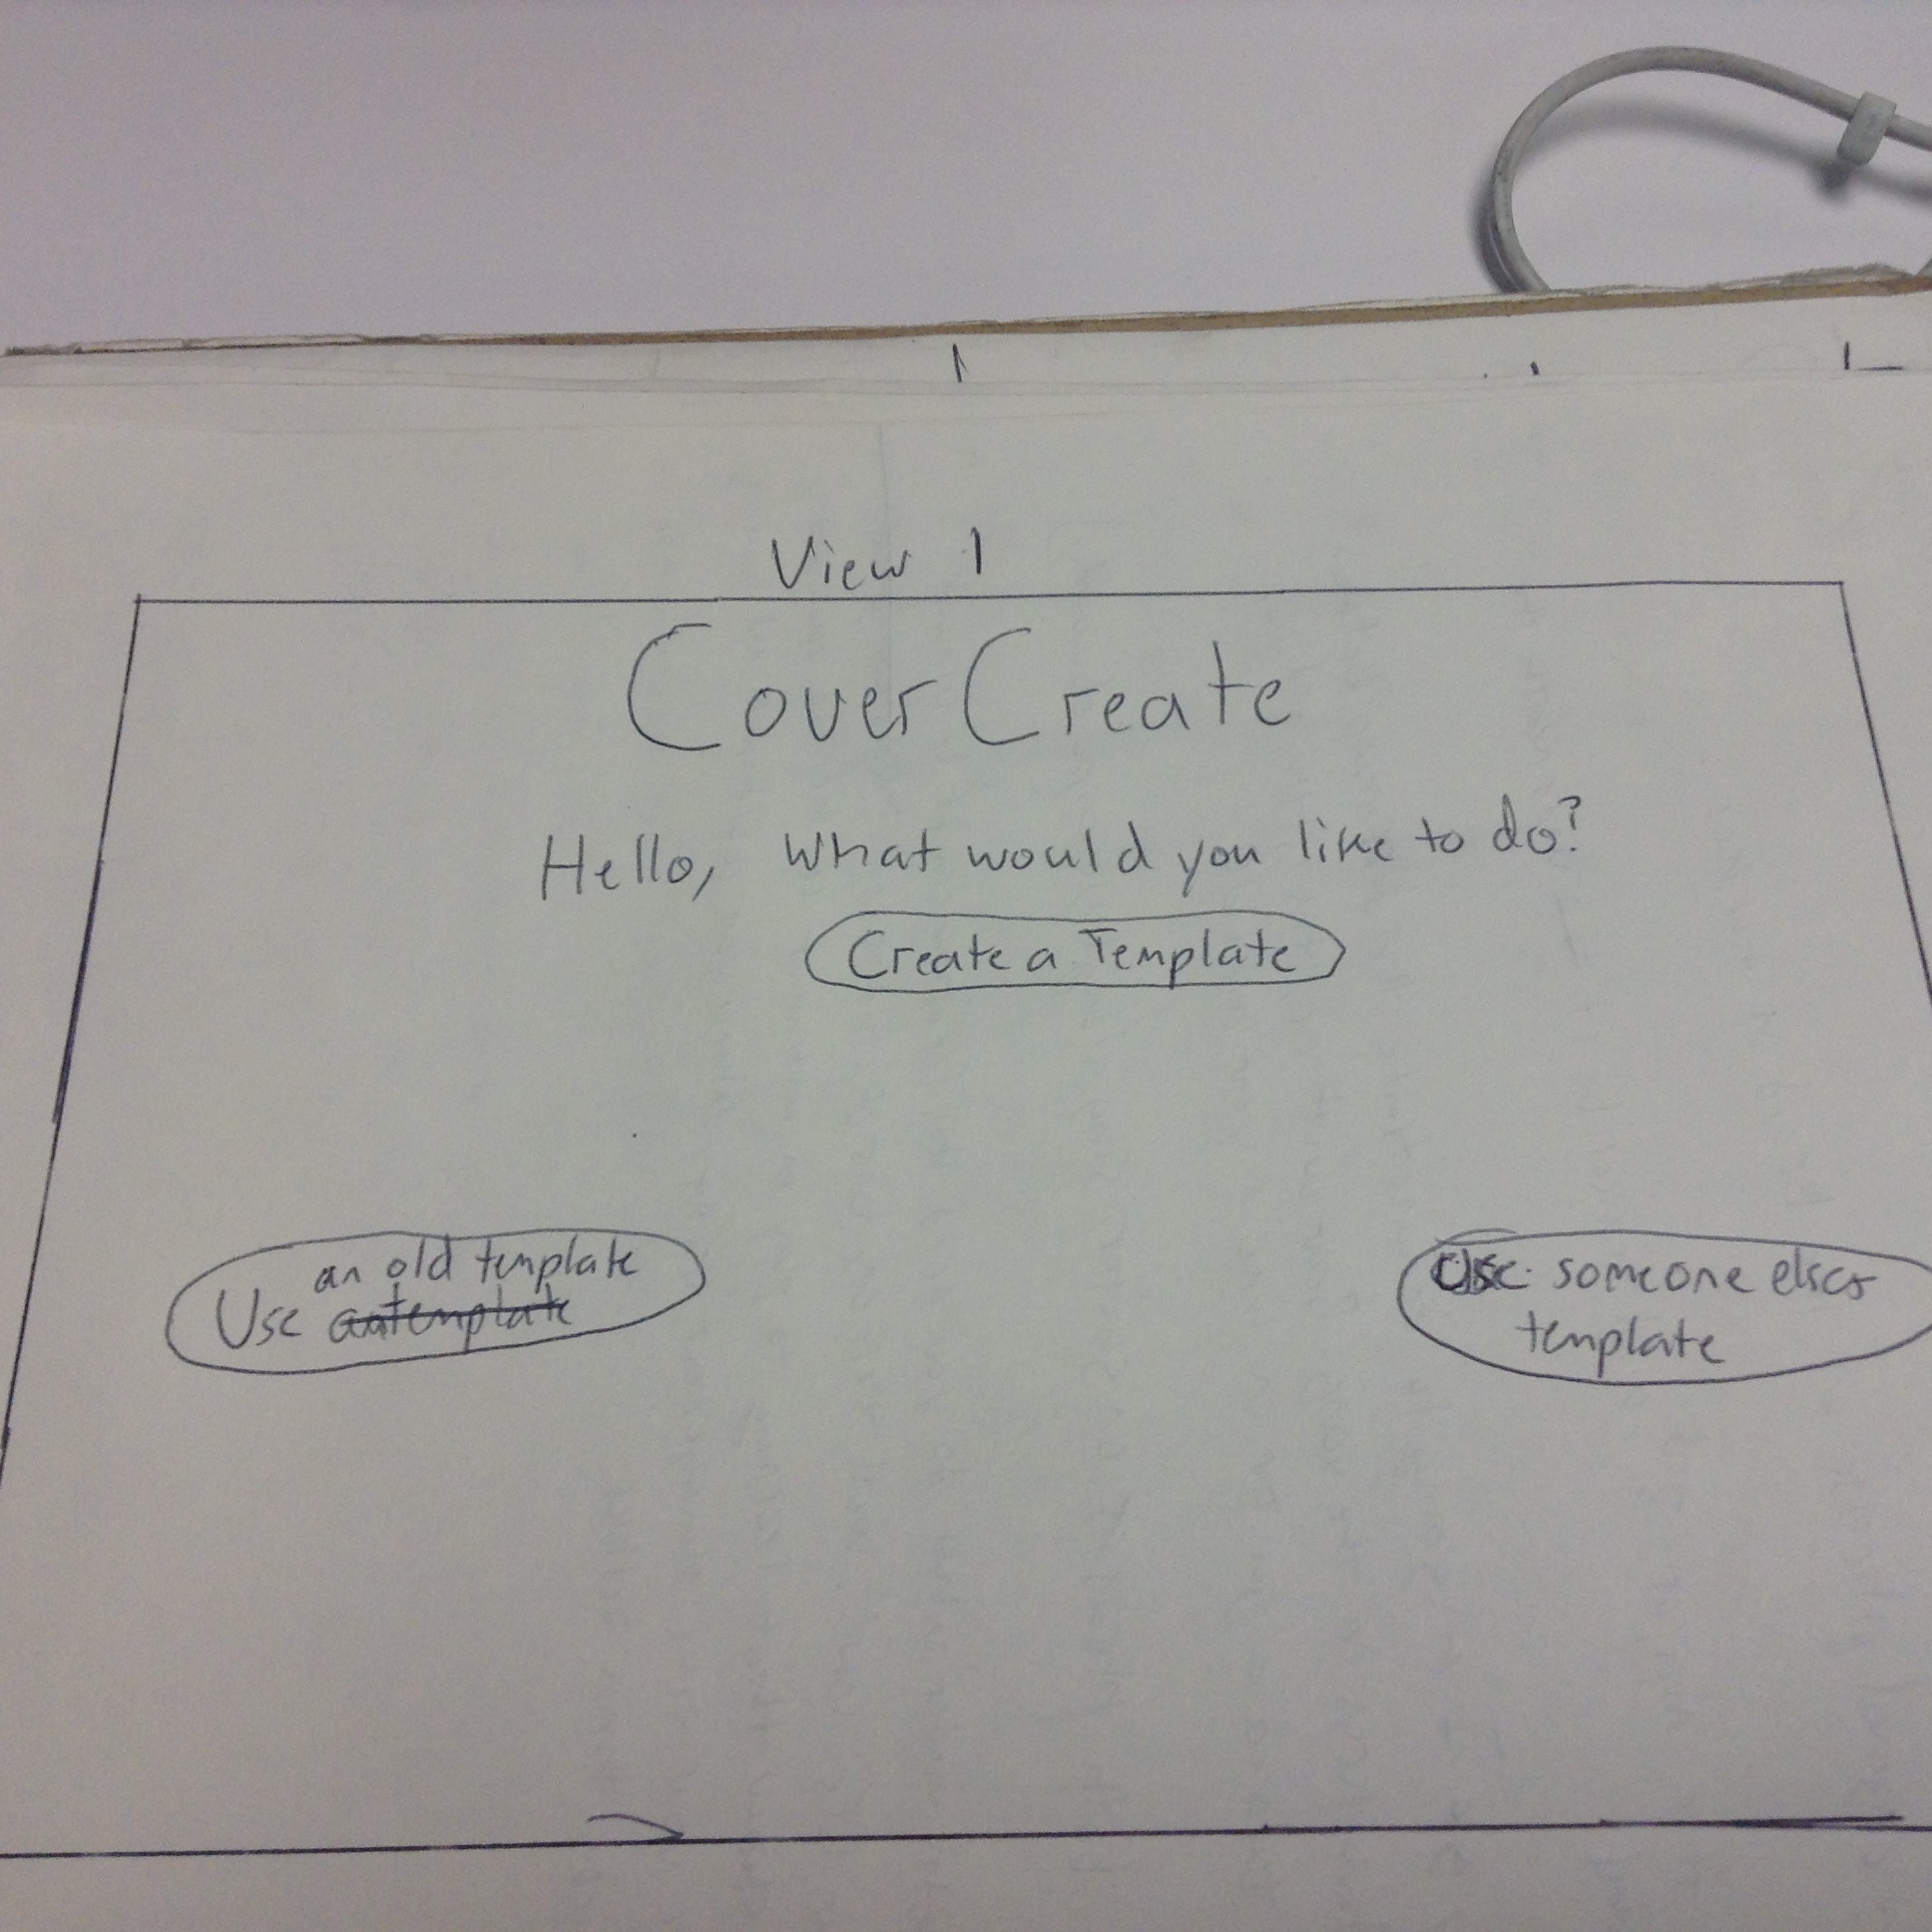 View 1
CoverCreate
Hello, What would you like to do?
Create a Template
an old template
Use
Use someone elses
template